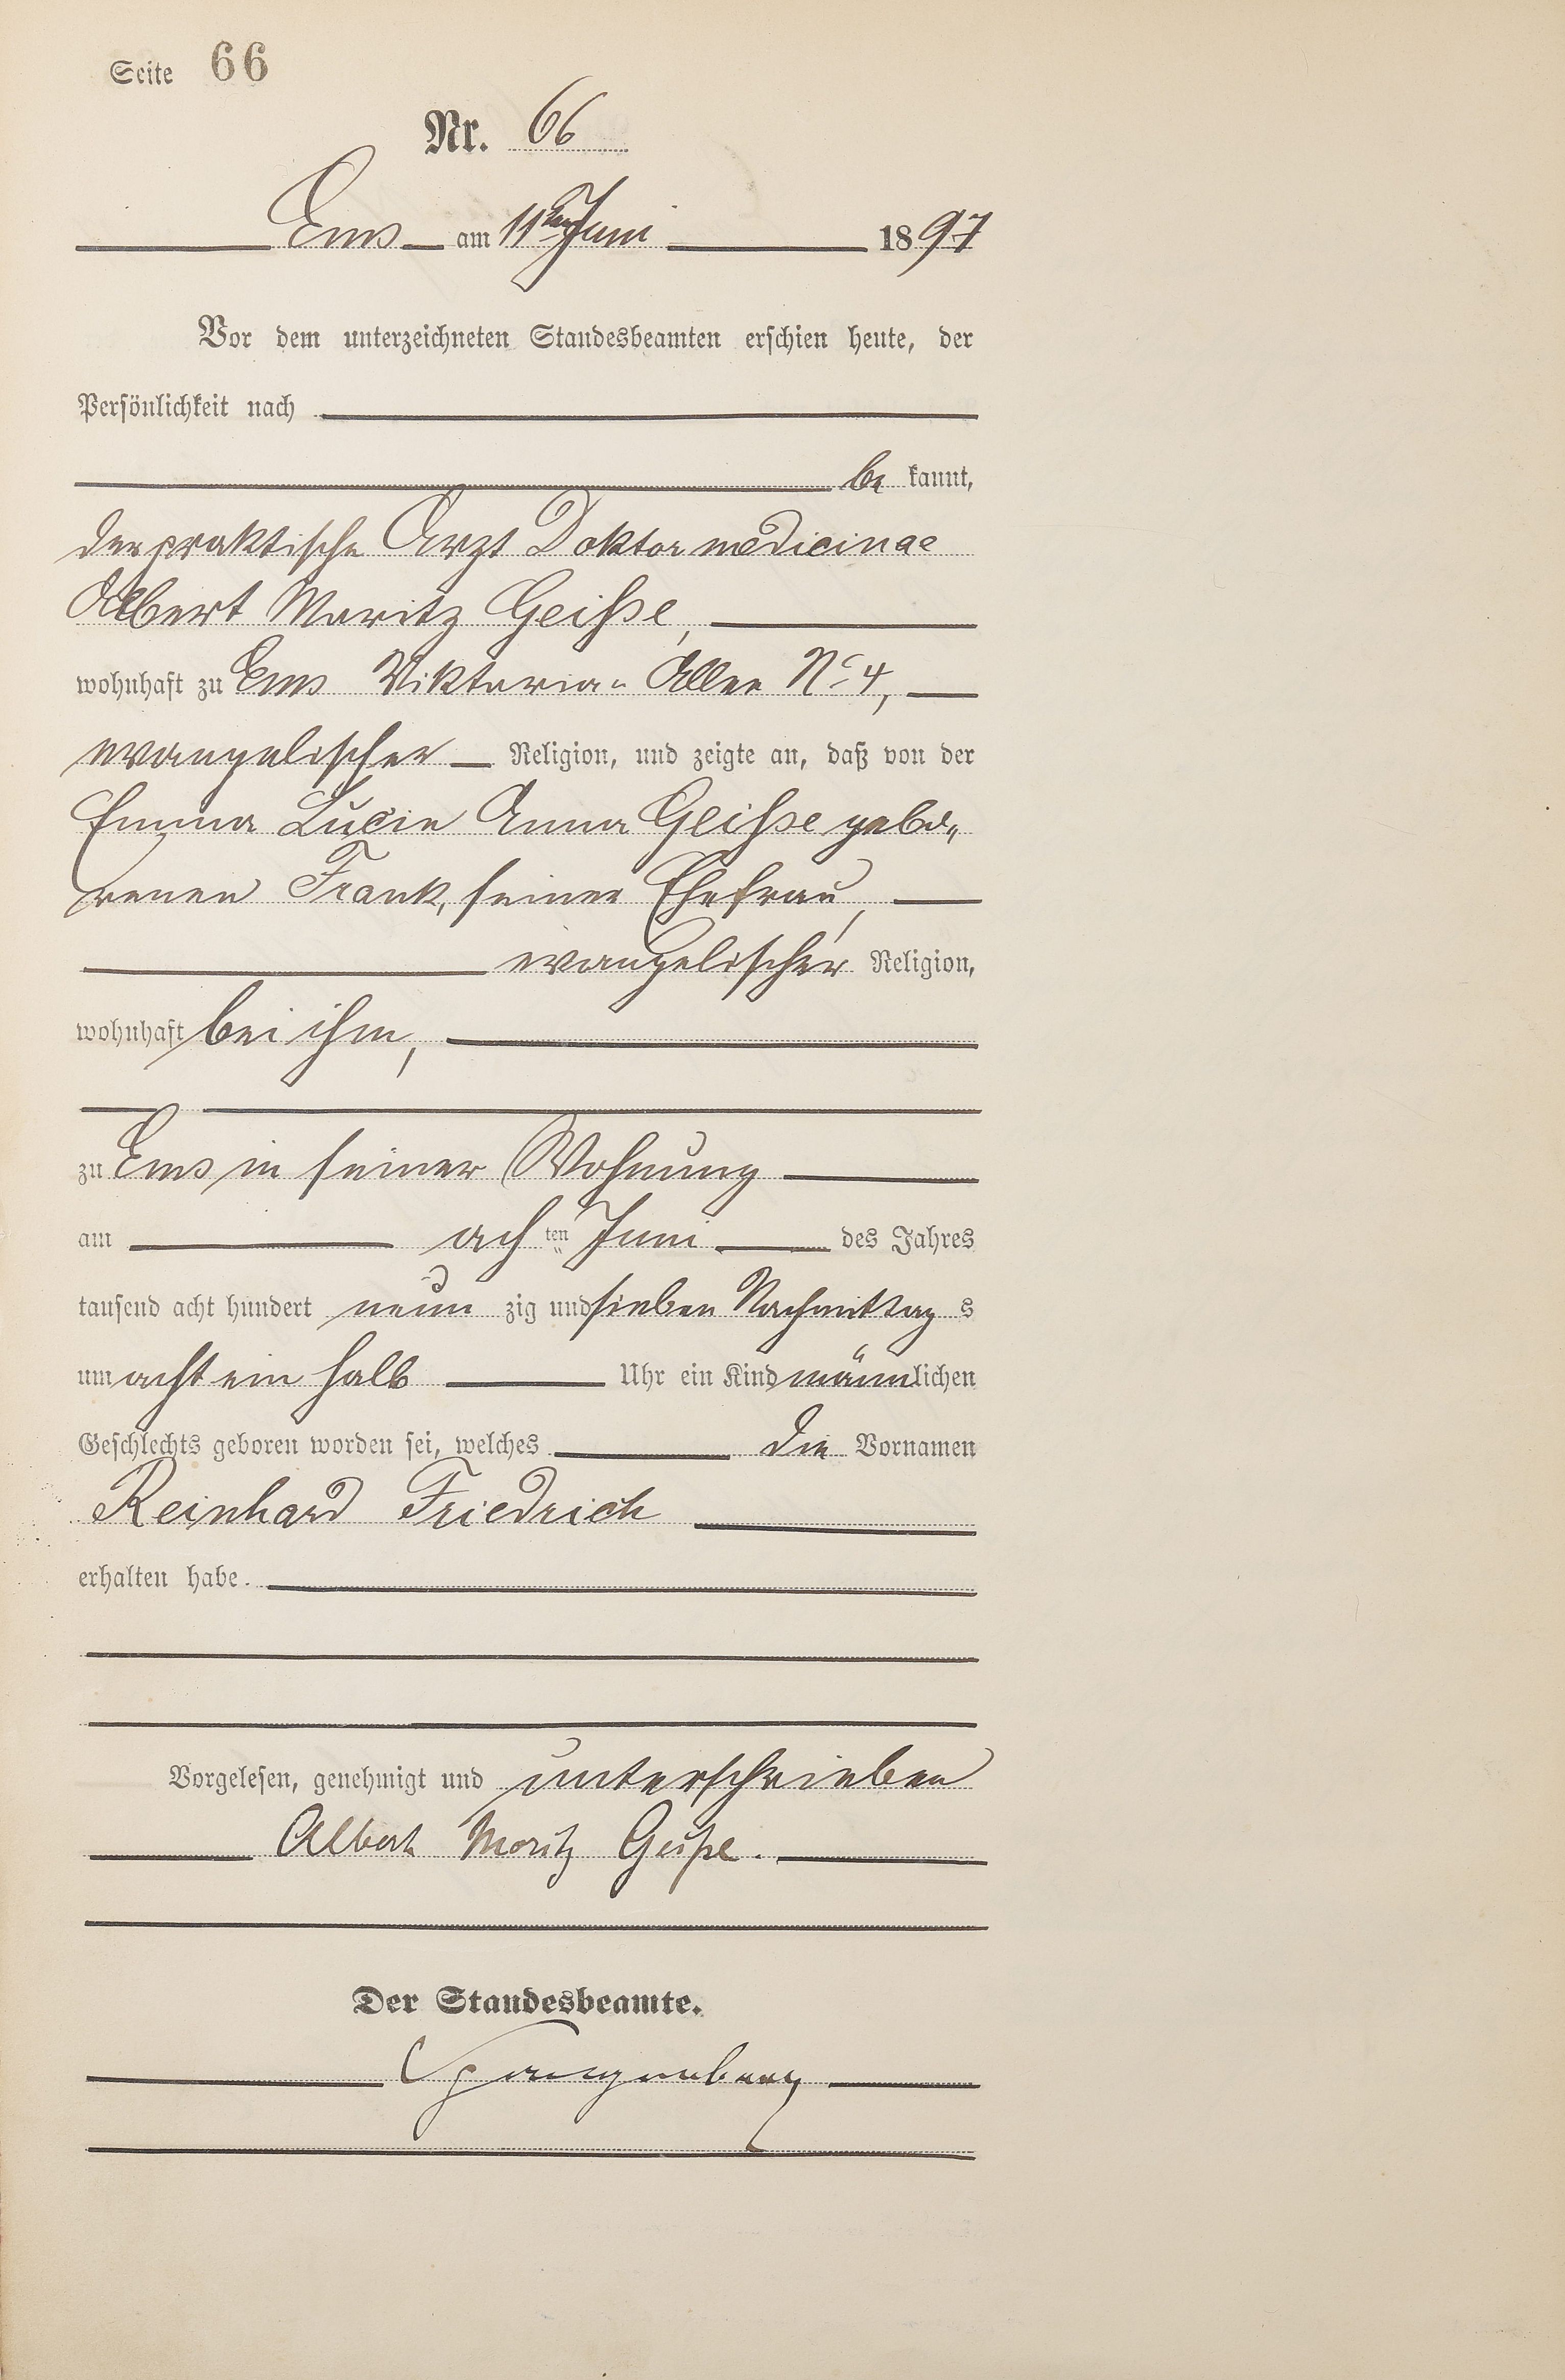 Seite 66
Nr. 66
Ems am 11ten Juni 1897
Vor dem unterzeichneten Standesbeamten erschien heute, der
Persönlichkeit nach
be kannt,
der praktische Arzt Doktor medicinae
Albert Moritz Geiße,
wohnhaft zu Ems Viktoria- Allee No 4,
evangelischer Religion, und zeigte an, daß von der
Emma Lucie Anna Geiße gebo-
renen Frank, seiner Ehefrau,
evangelischer Religion,
wohnhaft bei ihm,
zu Ems in seiner Wohnung
am ach ten Juni des Jahres
tausend acht hundert neun zig und sieben Nachmittag s
um acht ein halb Uhr ein Kind männlichen
Geschlechts geboren worden sei, welches die Vornamen
Reinhard Friedrich
erhalten habe.
Vorgelesen, genehmigt und unterschrieben
Albert Moritz Geiße.
Der Standesbeamte.
Spangenberg